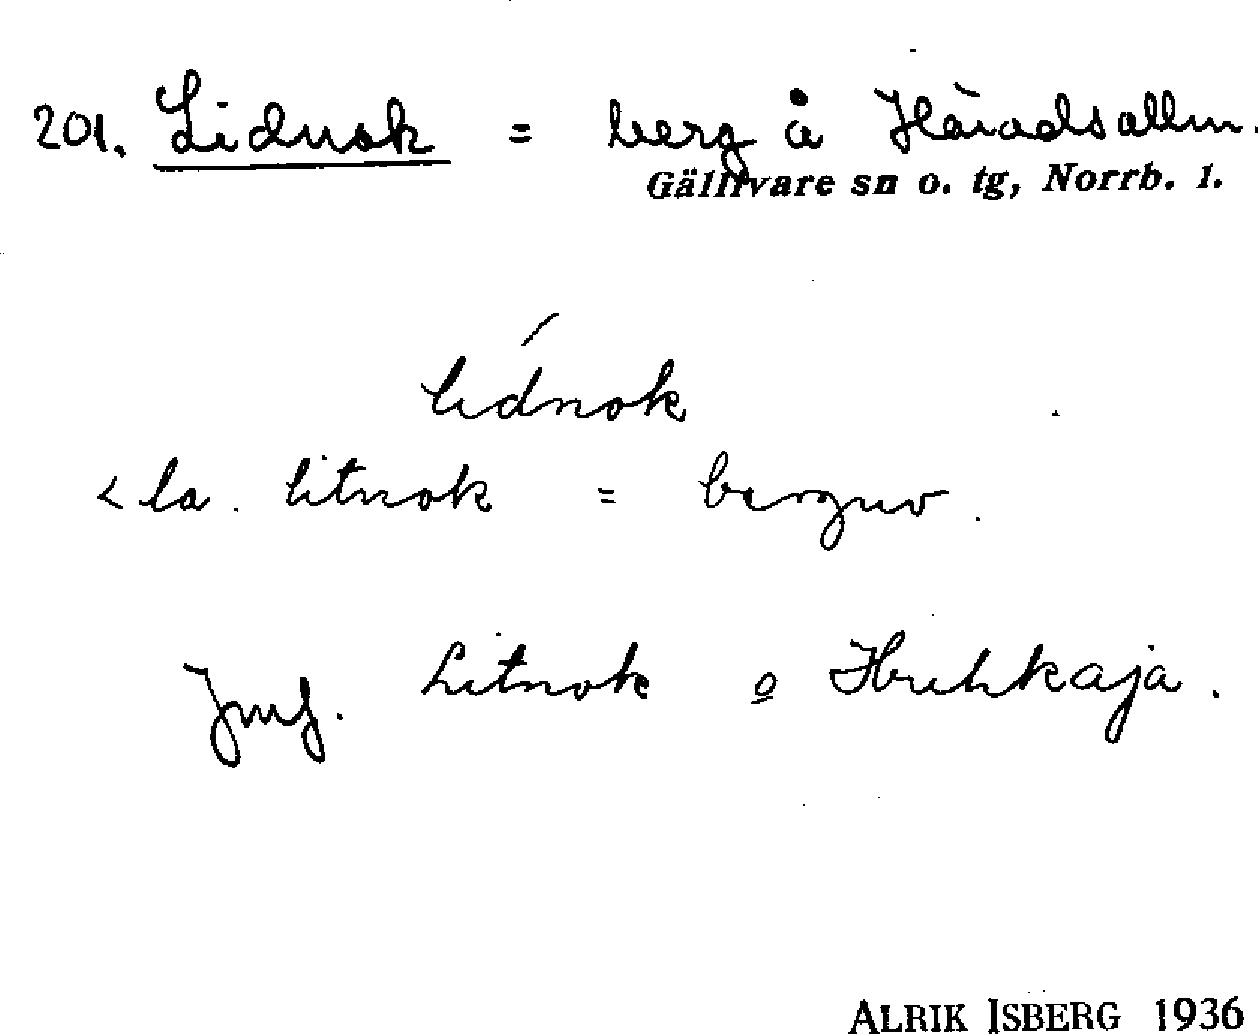 201. Lidnok = berg å Häradsallm.
Gällivare sn o. tg, Norrb. l.
lidnok
< la. litnok = berguv.
Jmf. Litnok o
ALRIK ISBERG 1936